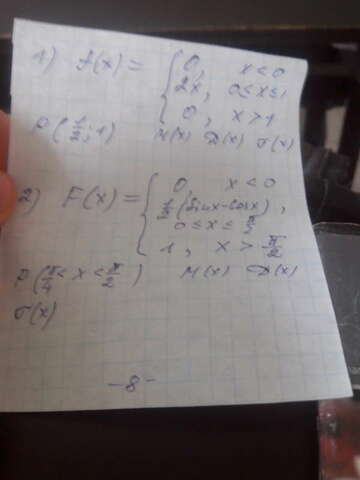 1) f(x) = { 0, x < 0
2x, 0 ≤ x ≤ 1
0, x > 1
P(1/2; 1) M(x) D(x) σ(x)
2) F(x) = { 0, x < 0
1/2 (sinx - cosx),
0 ≤ x ≤ π/2
1, x > π/2
P(π/4 < x < π/2) M(x) D(x)
σ(x)
- 8 -